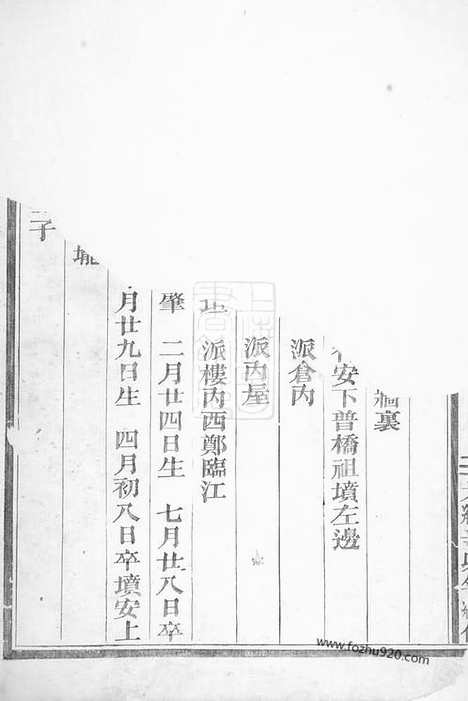 裏
安下普橋祖墳左邊
派倉內
派內屋
派樓內西鄭臨江
肇　二月廿四日生　七月廿八日卒
月廿九日生　四月初八日卒墳安上
子
www.fozhu920.com